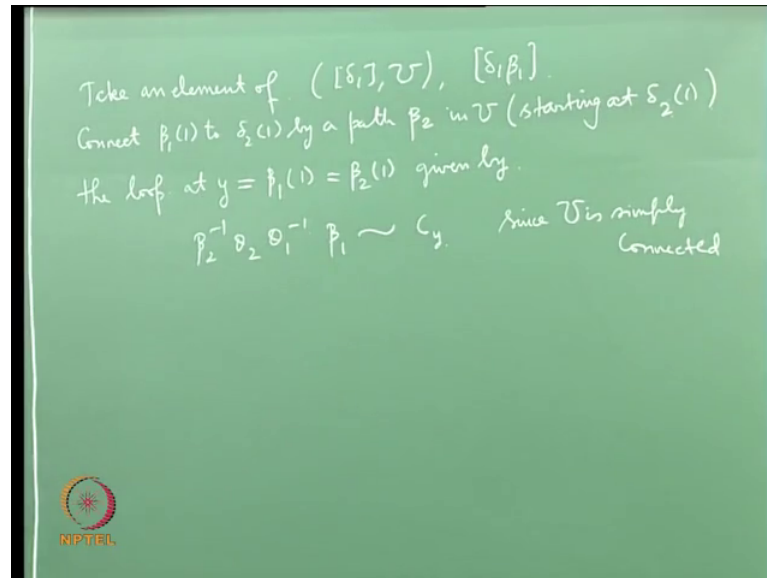 Take an element of ([δ₁], V), [δ₁β₁].
Connect β₁(1) to δ₂(1) by a path β₂ in V (starting at δ₂(1))
the loop at y = β₁(1) = β₂(1) given by.
β₂⁻¹ θ₂ θ₁⁻¹ β₁ ~ C_y. Since V is simply
Connected
NPTEL